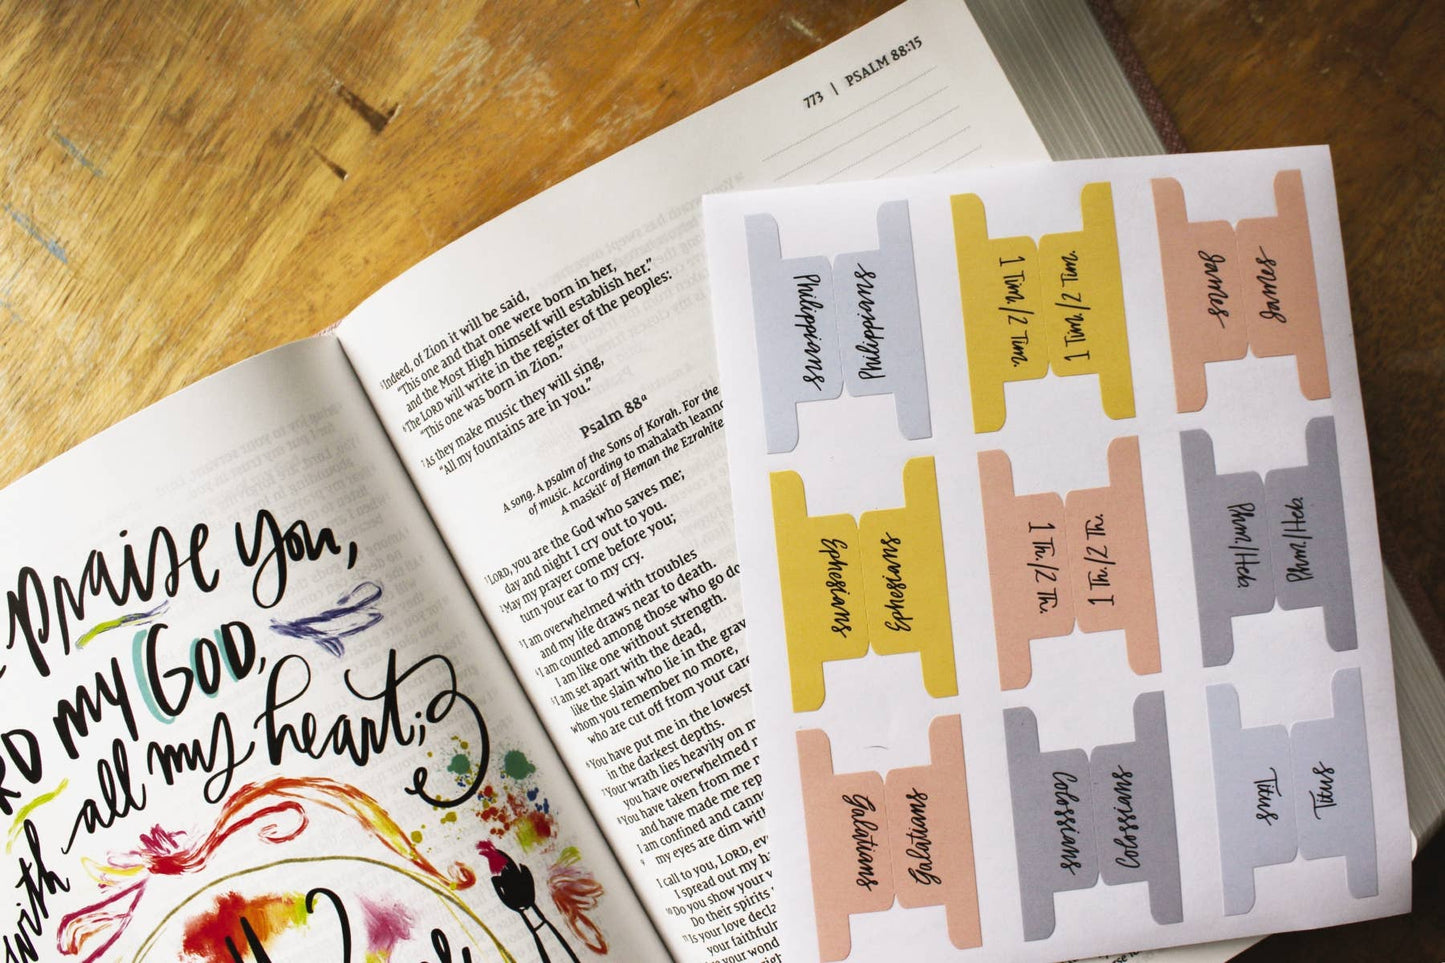 praise you,
my God,
with all my heart;
773 | PSALM 88:15
⁵Indeed, of Zion it will be said,
“This one and that one were born in her,
and the Most High himself will establish her.”
⁶The LORD will write in the register of the peoples:
“This one was born in Zion.”
⁷As they make music they will sing,
“All my fountains are in you.”
Psalm 88ᵃ
A song. A psalm of the Sons of Korah. For the
of music. According to mahalath leanno
A maskilᶜ of Heman the Ezrahite
¹LORD, you are the God who saves me;
day and night I cry out to you.
²May my prayer come before you;
turn your ear to my cry.
³I am overwhelmed with troubles
and my life draws near to death.
⁴I am counted among those who go do
I am like one without strength.
⁵I am set apart with the dead,
like the slain who lie in the grav
whom you remember no more,
who are cut off from your care
⁶You have put me in the lowest
in the darkest depths.
⁷Your wrath lies heavily on m
you have overwhelmed m
⁸You have taken from me m
and have made me rep
I am confined and canno
⁹my eyes are dim with
I call to you, LORD, eve
I spread out my ha
¹⁰Do you show your w
Do their spirits
¹¹Is your love decla
your faithfuln
your wond
Philippians
Philippians
1 Tim./2 Tim.
1 Tim./2 Tim.
James
James
Ephesians
Ephesians
1 Th./2 Th.
1 Th./2 Th.
Phm./Heb.
Phm./Heb.
Galatians
Galatians
Colossians
Colossians
Titus
Titus